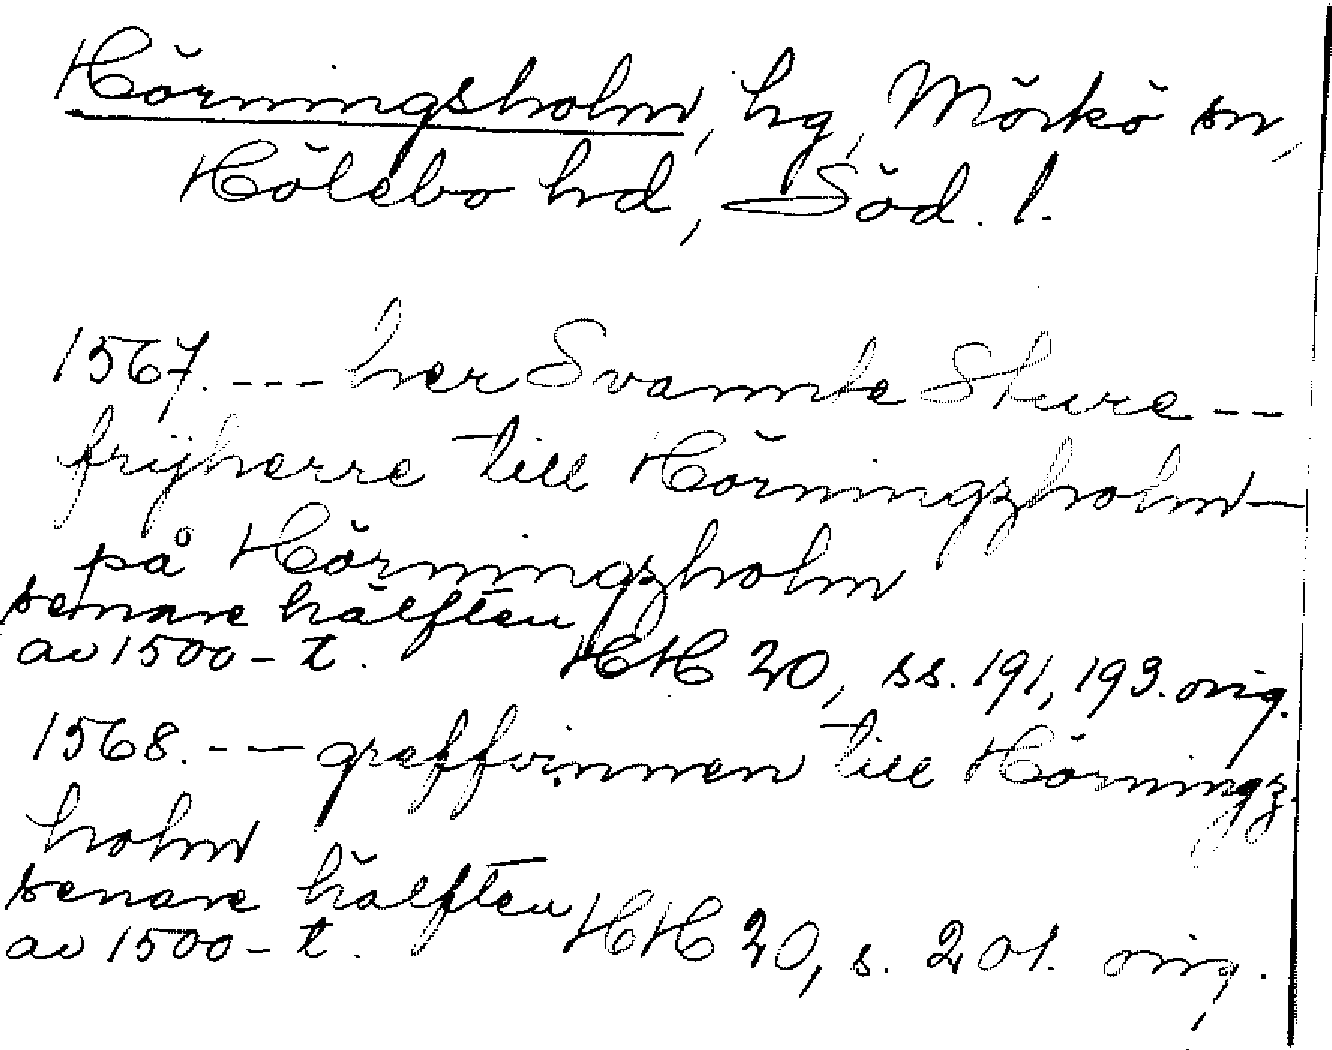 Hörningsholm, hg, Mörkö sn,
Hölebo hd, Söd. l.
1567. --- her Svannte Sture --
frijherre till Hörningzholm -
på Hörningzholm
senare hälften
av 1500-t. HH 20, ss. 191, 193. orig.
1568. --- greffvinnen till Hörningz-
holm
senare hälften
av 1500-t. HH 20, s. 201. orig.